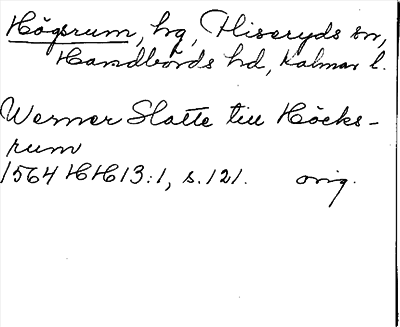 Högsrum, hg, Hiseryds sn,
Handbörds hd, Kalmar l.
Werner Slatte till Höcks-
rum
1564 HH13:1, s.121. orig.